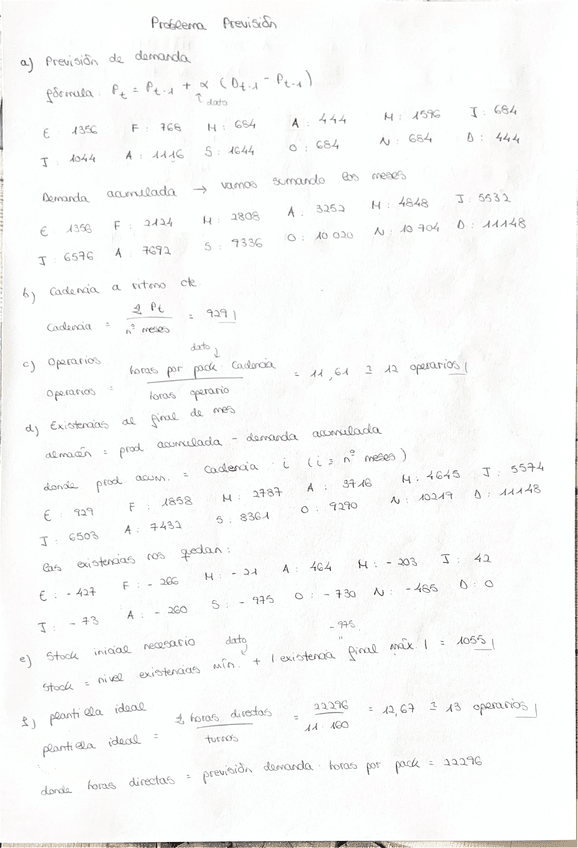 Problema Previsión
a) Previsión de demanda
fórmula: Pt = Pt-1 + α (Dt-1 - Pt-1)
↑ dato
E: 1356 F: 768 M: 684 A: 444 M: 1596 J: 684
J: 1044 A: 1116 S: 1644 O: 684 N: 684 D: 444
Demanda acumulada → vamos sumando los meses
E: 1356 F: 2124 M: 2808 A: 3252 M: 4848 J: 5532
J: 6576 A: 7692 S: 9336 O: 10 020 N: 10 704 D: 11148
b) Cadencia a ritmo cte
Cadencia = Σ Pt / nº meses = 929
c) Operarios
dato
Operarios = horas por pack · Cadencia / horas operario = 11,61 ≃ 12 operarios
d) Existencias al final de mes
almacén = prod acumulada - demanda acumulada
donde prod. acum. = Cadencia · i (i = nº meses)
E: 929 F: 1858 M: 2787 A: 3716 M: 4645 J: 5574
J: 6503 A: 7432 S: 8361 O: 9290 N: 10219 D: 11148
las existencias nos quedan:
E: -427 F: -266 M: -21 A: 464 M: -203 J: 42
J: -73 A: -260 S: -975 O: -730 N: -485 D: 0
e) Stock inicial necesario
dato -975
Stock = nivel existencias mín. + | existencia final máx | = 1055
f) plantilla ideal
plantilla ideal = Σ horas directas / turnos = 22296 / 11·160 = 12,67 ≃ 13 operarios
donde horas directas = previsión demanda · horas por pack = 22296